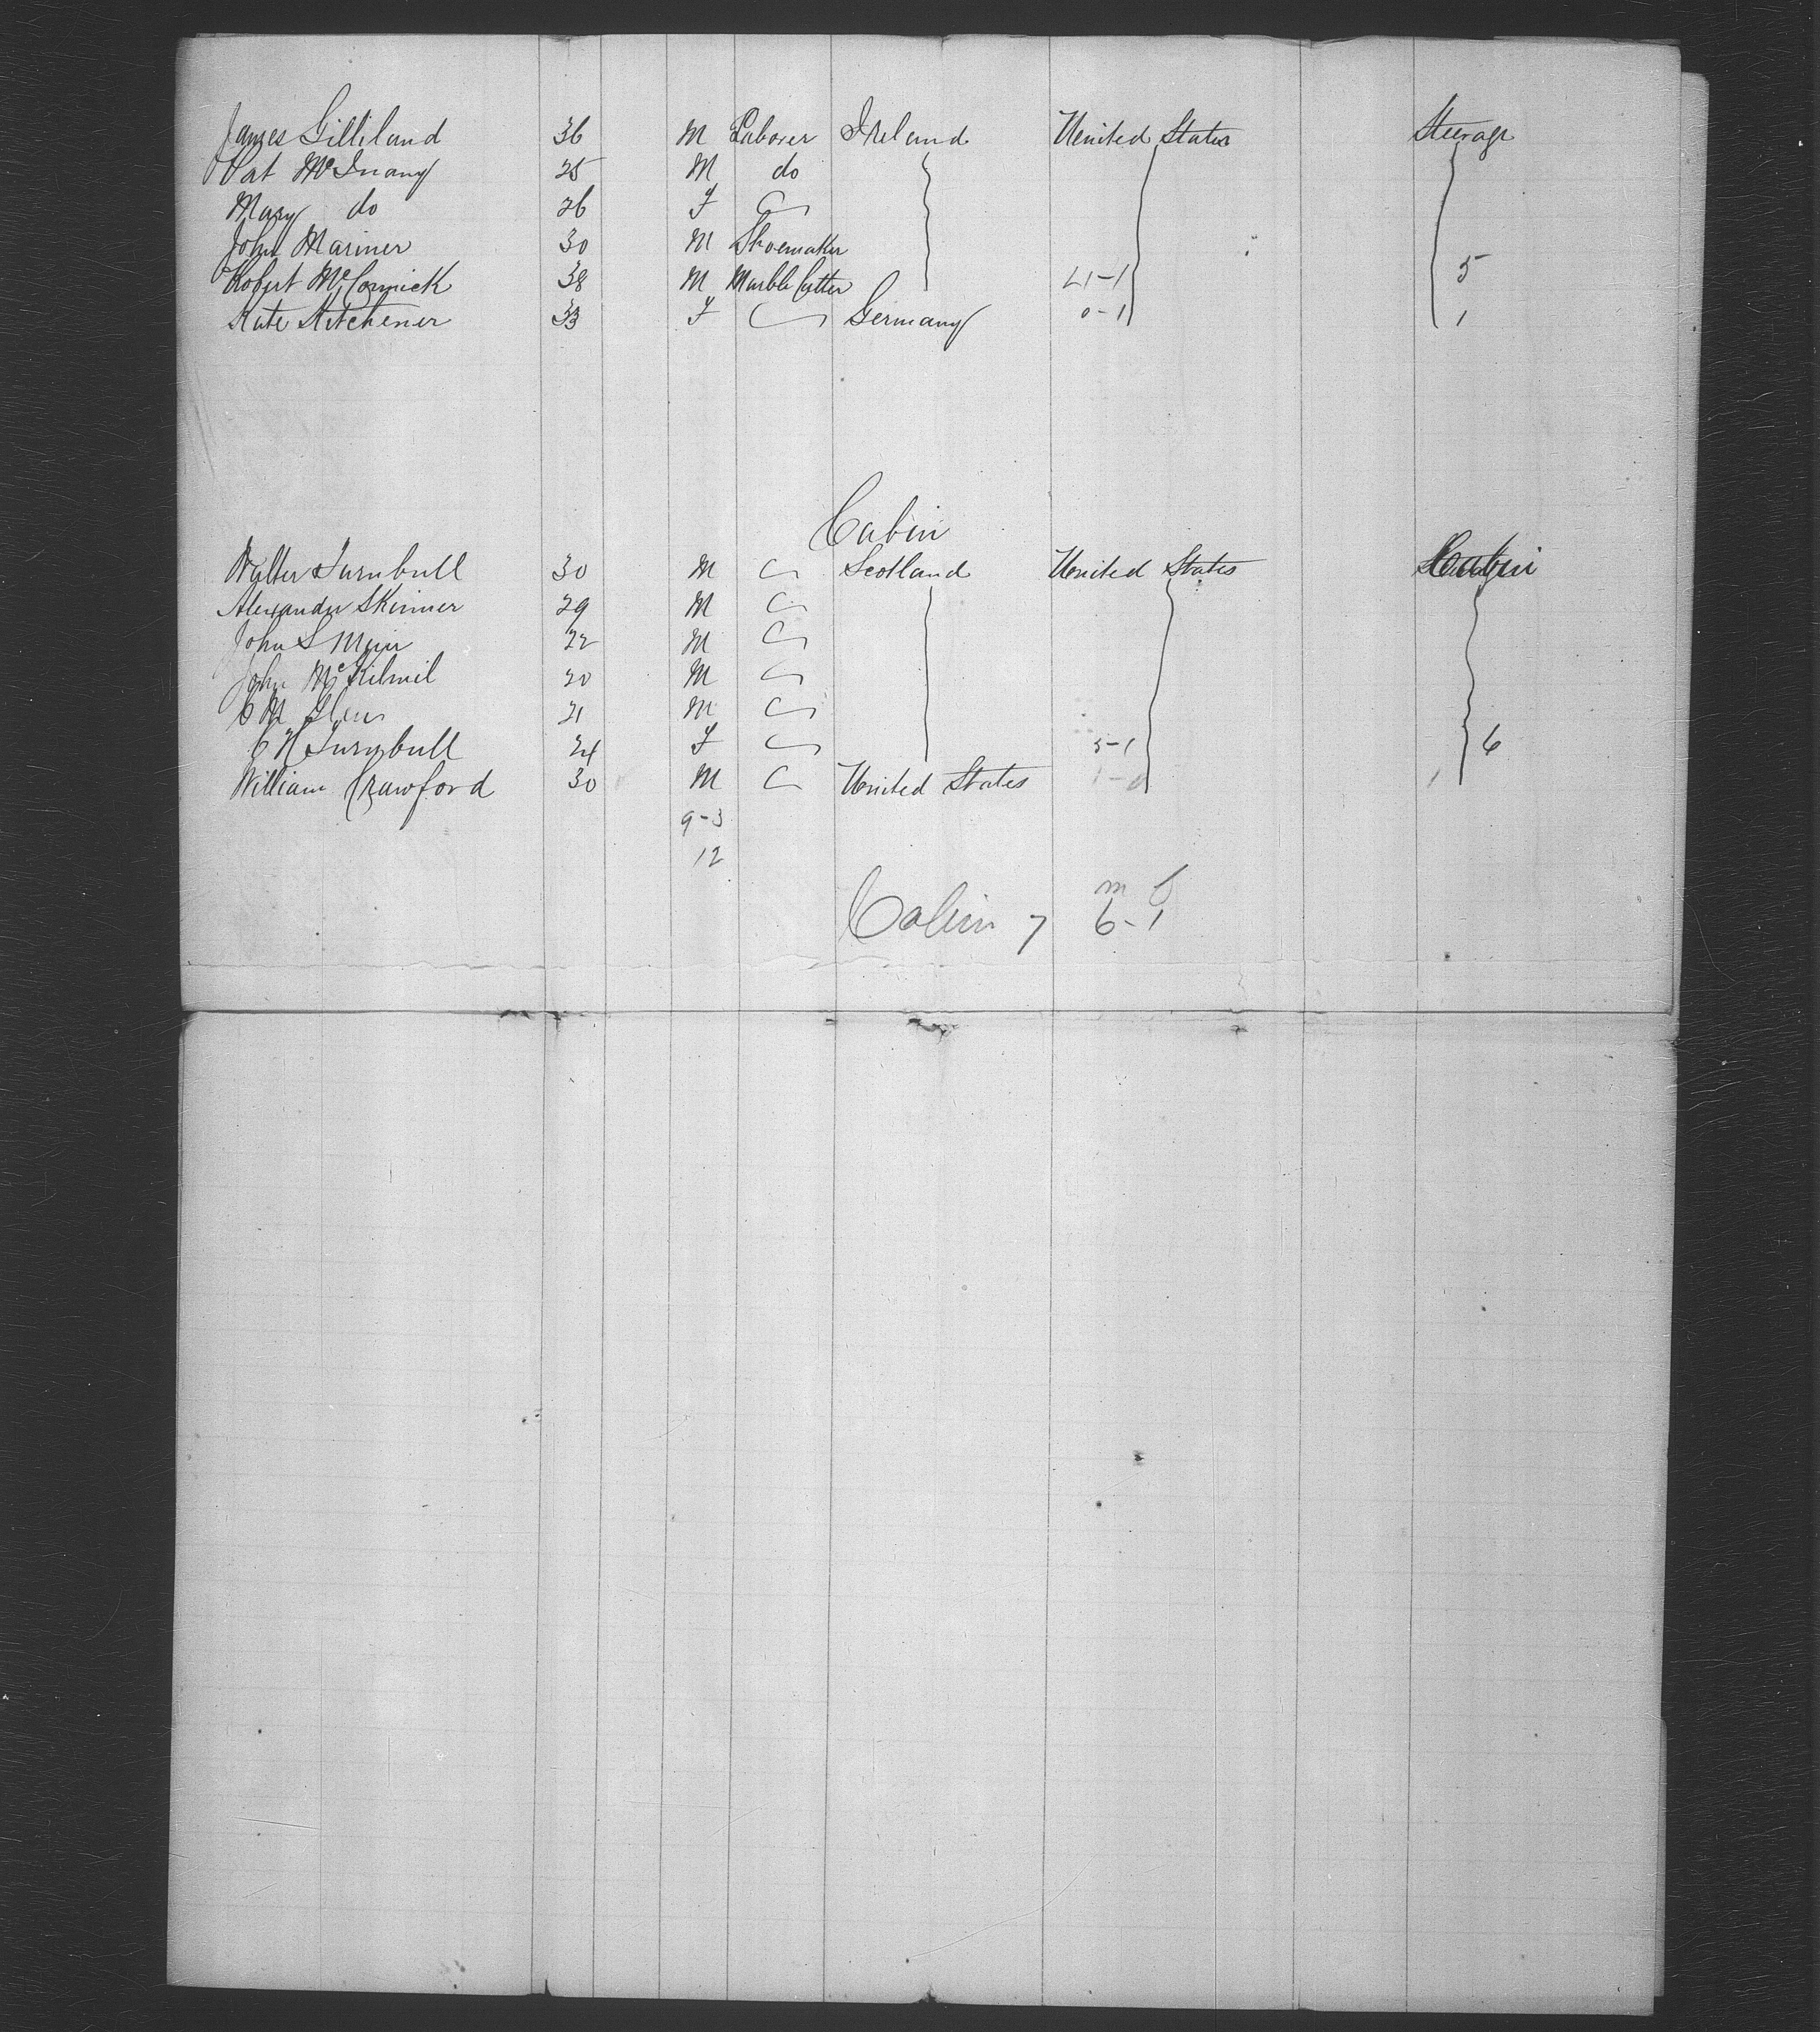 James Gilliland 36 M Laborer Ireland United States Steerage
Pat McInany 25 M do
Mary do 26 F
John Mariner 30 M Shoemaker
Robert McCormick 38 M Marble Cutter 4-1 5
Kate Kitchener 33 F Germany 0-1 1
Cabin
Walter Turnbull 30 M Scotland United States Cabin
Alexander Skinner 29 M
John S Muir 22 M
John 20 M
C M Glen 21 M
C H Turnbull 24 F 5-1 6
William Crawford 30 M United States 1-0 1
9-3
12
m f
Cabin 7 6-1